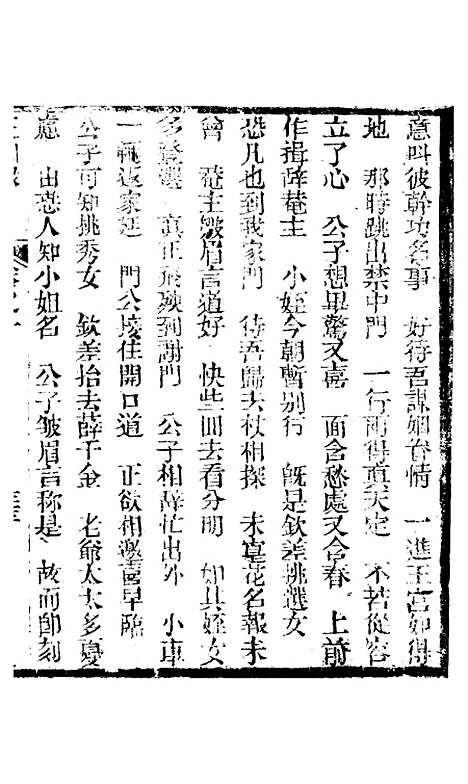 意叫彼幹功名事　好待吾謀姻眷情　一進王宮如得
地　那時跳出禁中門　一行兩得真天定　不若從容
立了心　公子想畢驚又喜　面含愁處又含春　上前
作揖辭庵主　小姪今朝暫別行　旣是欽差挑選女
恐凡也到我家門　待吾歸去杖相探　未草花名報未
曾　庵主皺眉言道好　快些回去看分明　如其姪女
多登選　真正飛殃到謝門　公子相辭忙出外　小車
一輛返家廷　門公接住開口道　正欲相邀喜早臨
公子可知挑秀女　欽差抬去薛千金　老爺太太多憂
慮　由恐人知小姐名　公子皺眉言称是　故而即刻